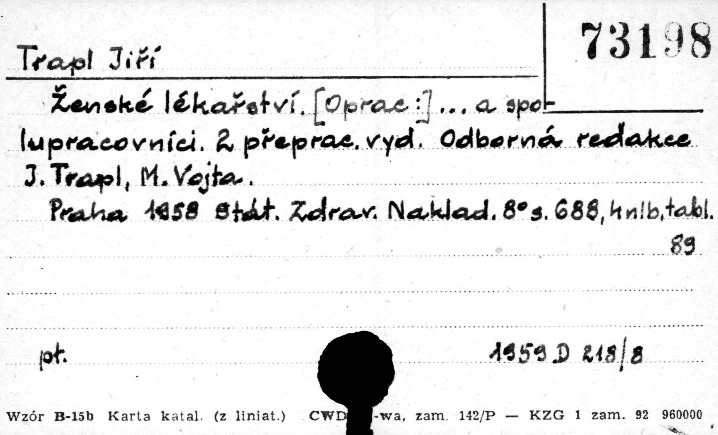 73198
Trapl Jiří
Ženské lékařství. [Oprac:] ... a spo-
lupracovníci. 2 přeprac. vyd. Odborná redakce
J. Trapl, M. Vojta.
Praha 1958 Stát. Zdrav. Naklad. 8° s. 688, hnlb, tabl.
89
pt. 1959 D 218/8
Wzór B-15b Karta katal. (z liniat.) CWD -wa, zam. 142/P — KZG 1 zam. 92 960000